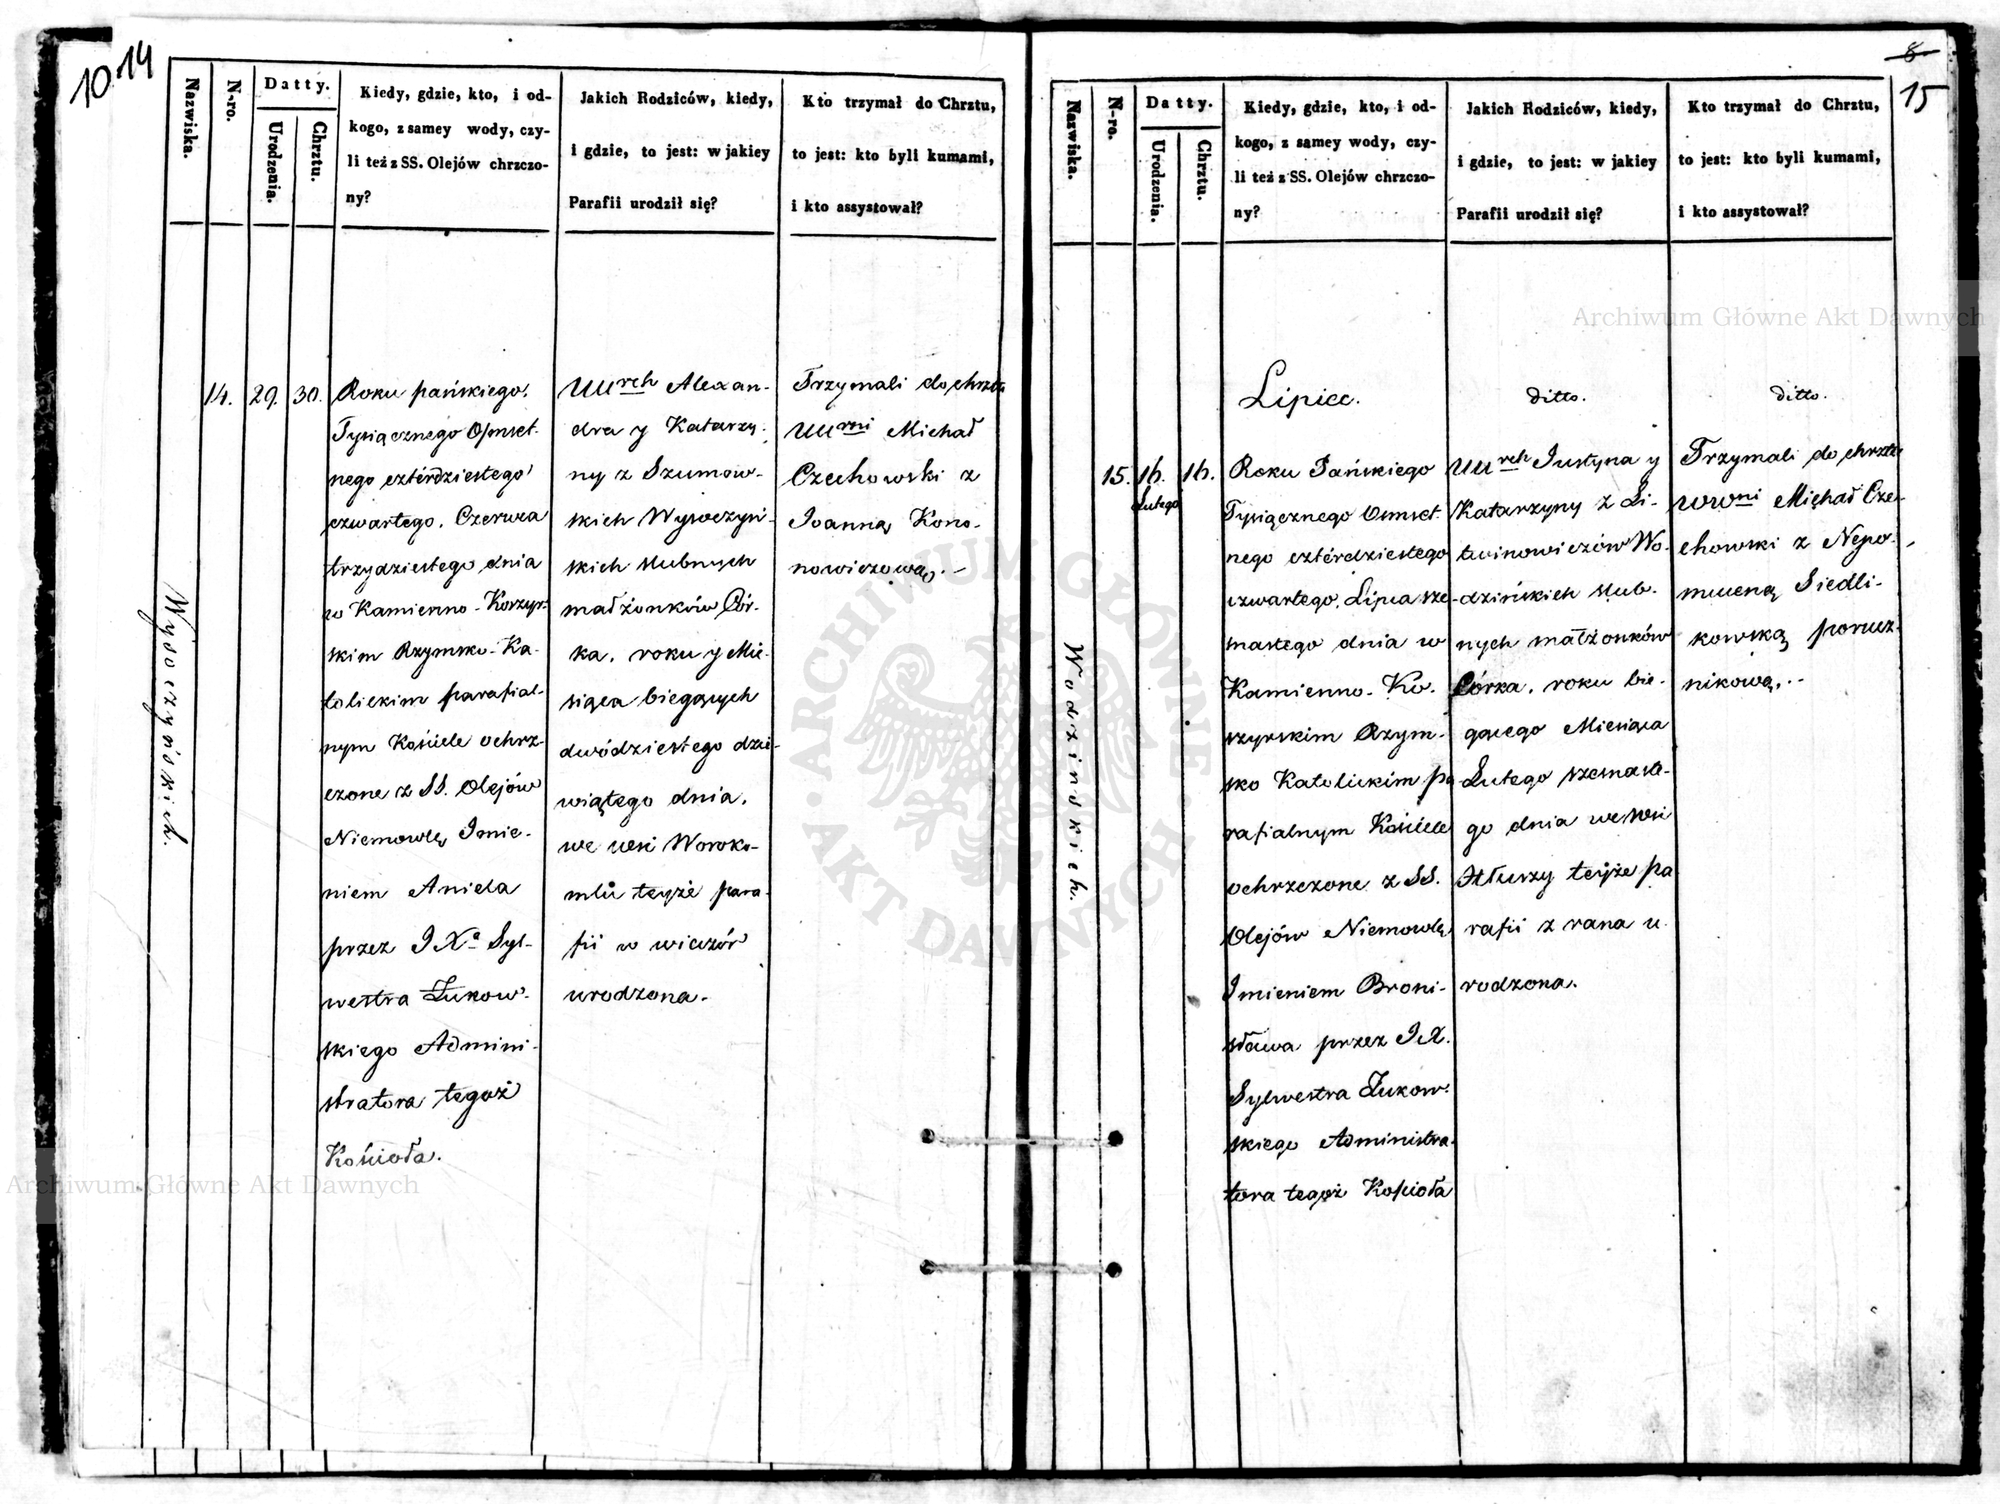 10 14
Nazwiska.
N-ro.
Datty.
Urodzenia.
Chrztu.
Kiedy, gdzie, kto, i od-
kogo, z samey wody, czy-
li też z SS. Olejów chrzczo-
ny?
Jakich Rodziców, kiedy,
i gdzie, to jest: w jakiey
Parafii urodził się?
Kto trzymał do Chrztu,
to jest: kto byli kumami,
i kto assystował?
Wysoczyńskich.
14. 29. 30.
Roku pańskiego.
Tysiącznego Ośmset-
nego cztérdziestego
czwartego. Czerwca
trzydziestego dnia
w Kamienno-Koszyr-
skim Rzymsko-Ka-
tolickim parafial-
nym Kościele ochrz-
czone z SS. Olejów
Niemowlę Imie-
niem Aniela
przez JXa Syl-
westra Żukow-
skiego Admini-
stratora tegoż
Kościoła.
UUrch Alexan-
dra y Katarzy-
ny z Szumow-
skich Wysoczyń-
skich slubnych
małżonków Cór-
ka. roku y Mie-
siąca biegących
dwódziestego dzie-
wiątego dnia.
we wsi Woroko-
mlu teyże para-
fii w wieczór
urodzona.
Trzymali do chrztu
UUrni Michał
Czechowski z
Joanną Kono-
nowiczową.
8
15
Nazwiska.
N-ro.
Datty.
Urodzenia.
Chrztu.
Kiedy, gdzie, kto, i od-
kogo, z samey wody, czy-
li też z SS. Olejów chrzczo-
ny?
Jakich Rodziców, kiedy,
i gdzie, to jest: w jakiey
Parafii urodził się?
Kto trzymał do Chrztu,
to jest: kto byli kumami,
i kto assystował?
Wodzinskich.
Lipiec. ditto. ditto.
15. 16. 16.
Lutego
Roku Pańskiego
Tysiącznego Osmset-
nego cztérdziestego
czwartego. Lipca sze-
snastego dnia w
Kamienno-Ko-
szyrskim Rzym-
sko Katolickim pa
rafialnym Kościele
ochrzczone z SS.
Olejów Niemowlę
Imieniem Broni-
sława przez JX.
Sylwestra Żukow-
skiego Administra-
tora tegoż Kościoła
UUrch Justyna y
Katarzyny z Li-
twinowiczów Wo-
dzińskich slub-
nych małżonków
Córka. roku bie-
gącego Miesiąca
Lutego szesnaste-
go dnia we wsi
teyże pa
rafii z rana u-
rodzona.
Trzymali do chrztu
Michał Cze-
chowski z Nepo-
muceną Siedli-
kowską porucz-
nikową.
Archiwum Główne Akt Dawnych
ARCHIWUM GŁÓWNE
AKT DAWNYCH
Archiwum Główne Akt Dawnych